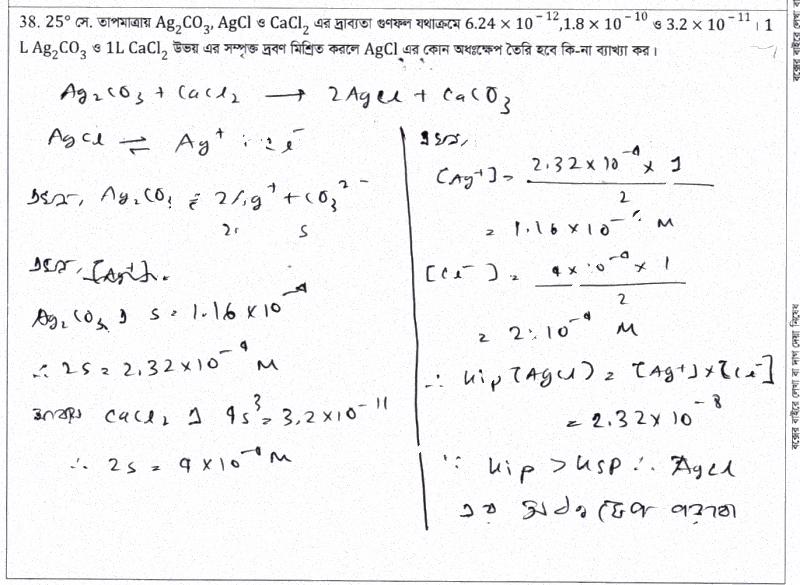 38. 25° সে. তাপমাত্রায় Ag₂CO₃, AgCl ও CaCl₂ এর দ্রাব্যতা গুণফল যথাক্রমে 6.24 × 10⁻¹²,1.8 × 10⁻¹⁰ ও 3.2 × 10⁻¹¹ । 1
L Ag₂CO₃ ও 1L CaCl₂ উভয় এর সম্পৃক্ত দ্রবণ মিশ্রিত করলে AgCl এর কোন অধঃক্ষেপ তৈরি হবে কি-না ব্যাখ্যা কর।
Ag₂CO₃ + CaCl₂ ⟶ 2AgCl + CaCO₃
AgCl ⇌ Ag⁺ + Cl⁻
এখন, Ag₂CO₃ ⇌ 2Ag⁺ + CO₃²⁻
2s s
এখন, [Ag⁺] =
Ag₂CO₃ এ s = 1.16 × 10⁻⁴
∴ 2s = 2.32 × 10⁻⁴ M
CaCl₂ এ 4s³ = 3.2 × 10⁻¹¹
∴ 2s = 4 × 10⁻⁴ M
এখন,
[Ag⁺] = 2.32 × 10⁻⁴ × 1 / 2
= 1.16 × 10⁻⁴ M
[Cl⁻] = 4 × 10⁻⁴ × 1 / 2
= 2 × 10⁻⁴ M
∴ Kip (AgCl) = [Ag⁺] × [Cl⁻]
= 2.32 × 10⁻⁸
∵ Kip > Ksp ∴ AgCl
এর অধঃক্ষেপ পড়বে
বক্সের বাইরে লেখা বা দাগ দেয়া নিষেধ
বক্সের বাইরে